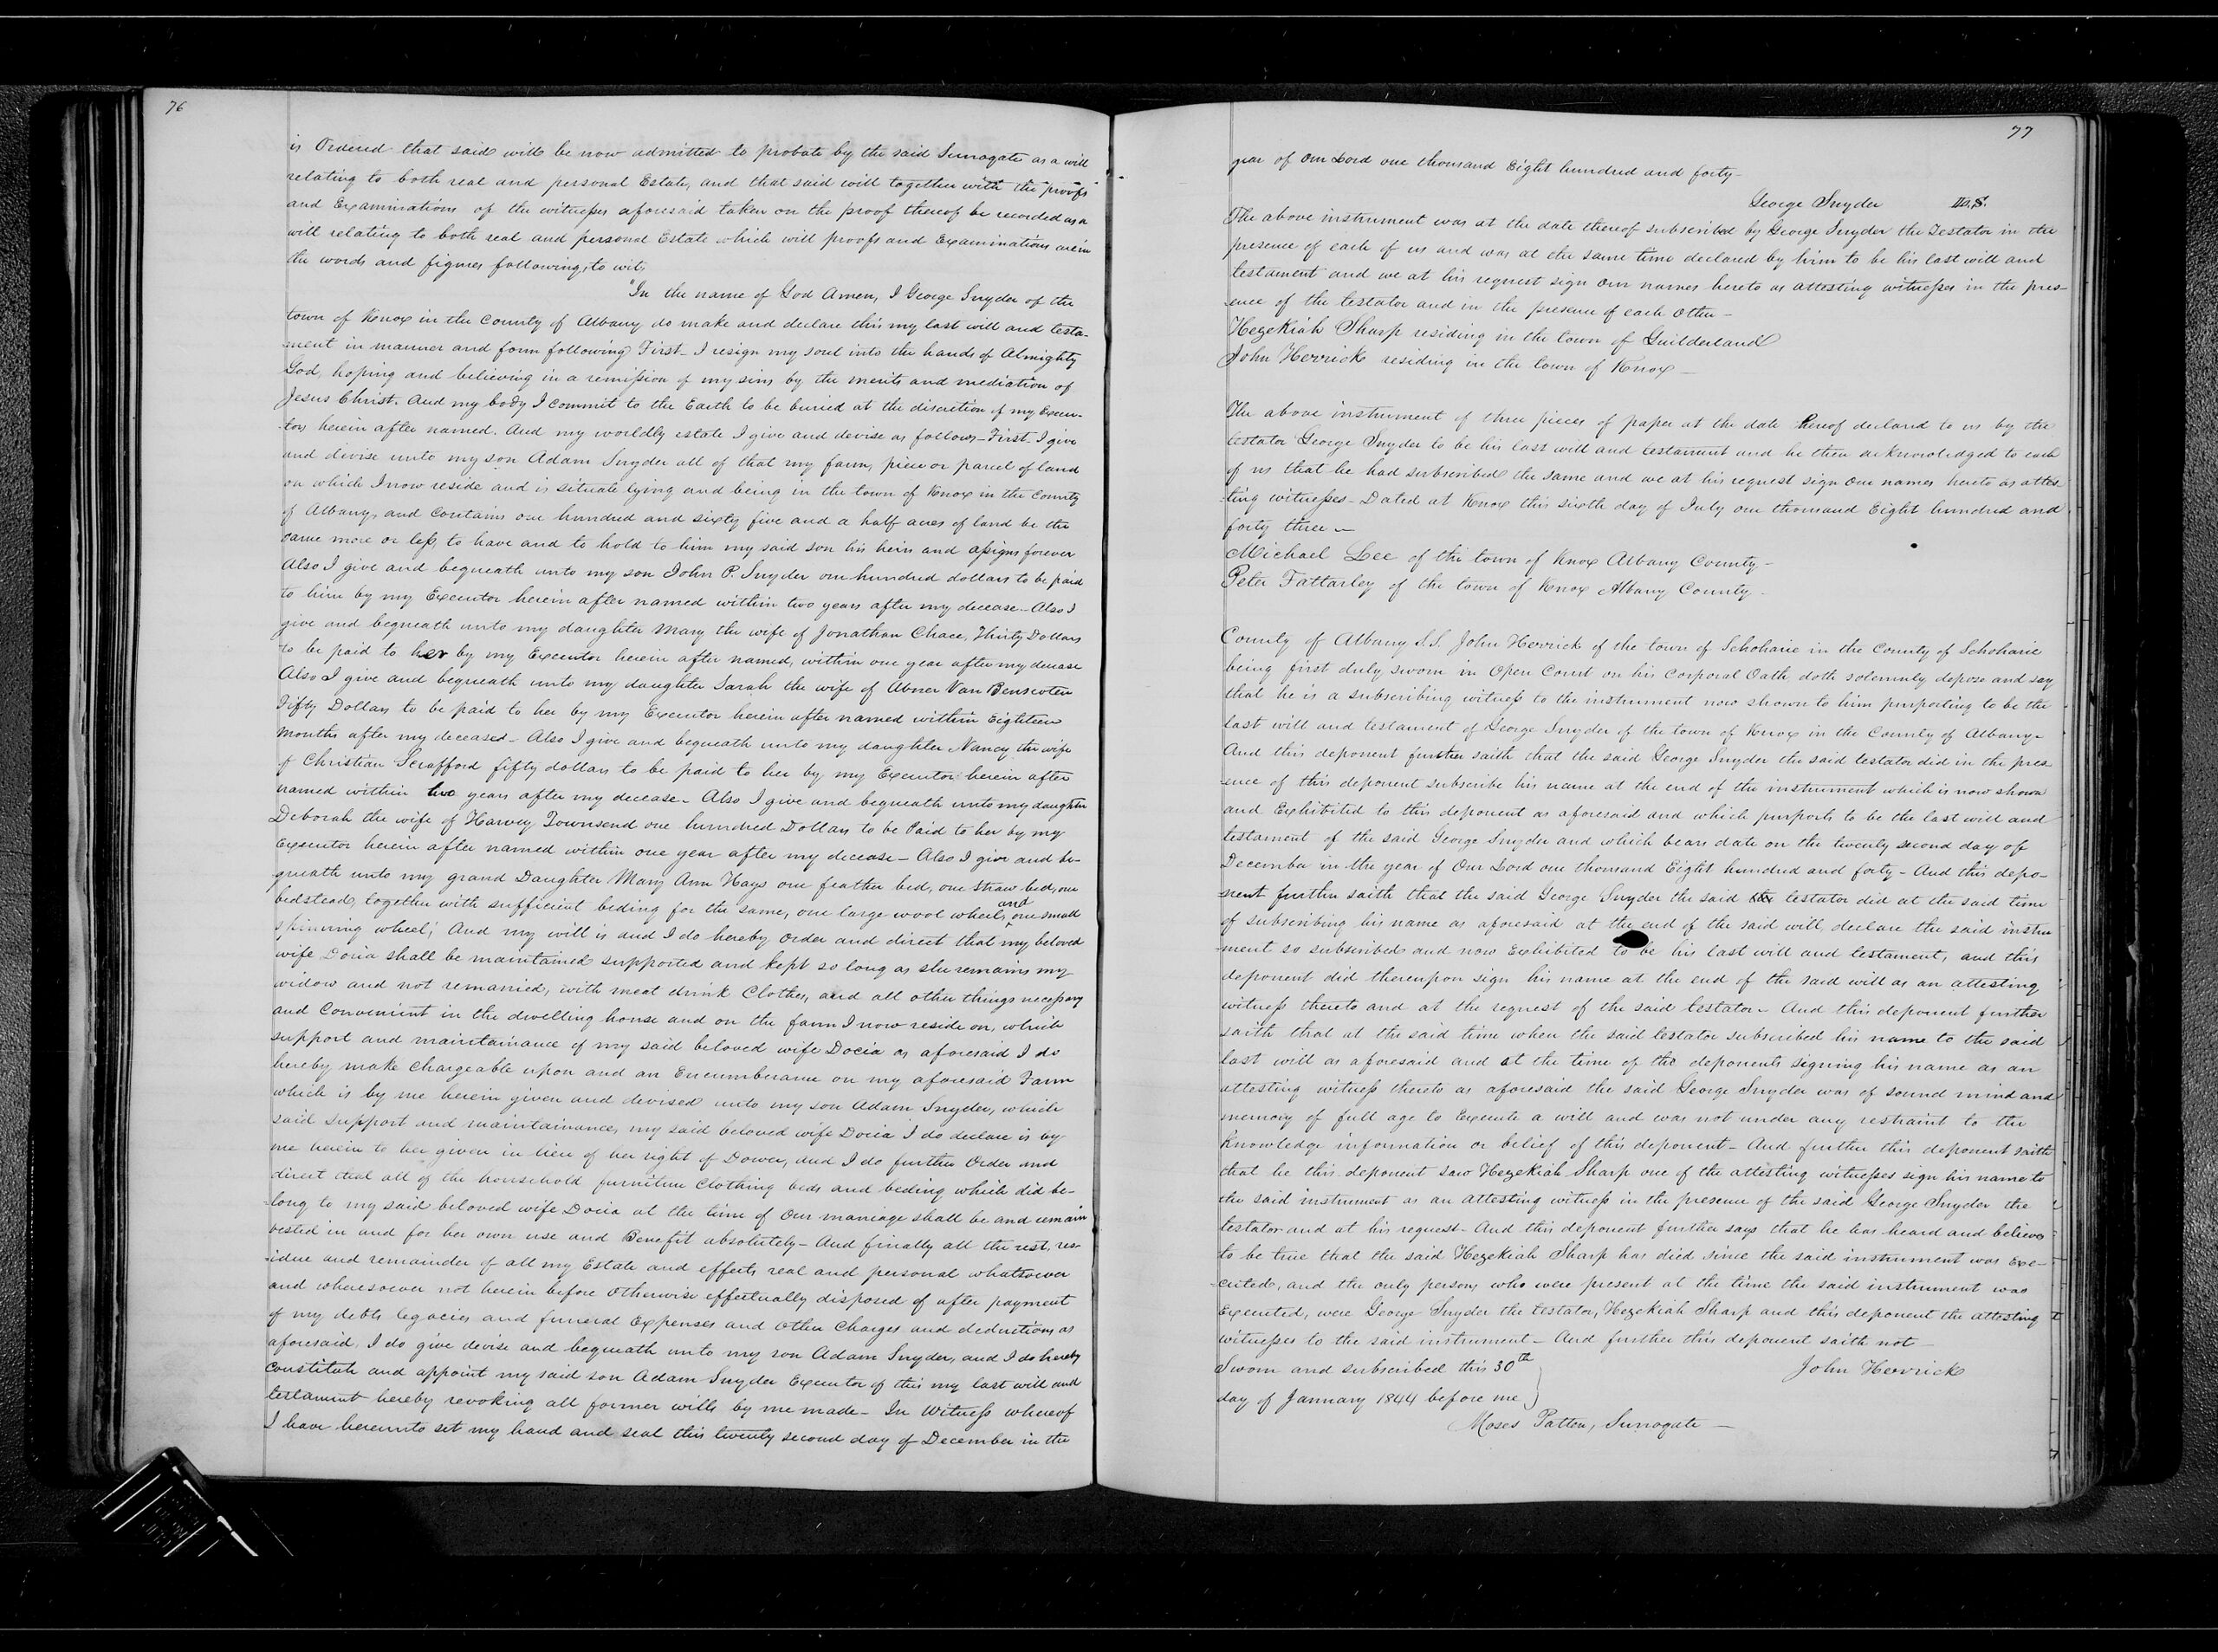 76
is Ordered that said will be now admitted to probate by the said Surrogate as a will
relating to both real and personal Estate, and that said will together with the proofs
and Examinations of the witnesses aforesaid taken on the proof thereof be recorded as a
will relating to both real and personal Estate which will proofs and Examinations are in
the words and figures following, to wit,
"In the name of God Amen, I George Snyder of the
town of Knox in the County of Albany do make and declare this my last will and testa-
-ment in manner and form following First- I resign my soul into the hands of Almighty
God, hoping and believing in a remission of my sins by the merits and mediation of
Jesus Christ. And my body I commit to the Earth to be buried at the discretion of my Execu-
-tors herein after named. And my worldly estate I give and devise as follows- First- I give
and divise unto my son Adam Snyder all of that my farm, piece or parcel of land
on which I now reside and is situate lying and being in the town of Knox in the County
of Albany, and Contains one hundred and sixty five and a half acres of land be the
same more or less, to have and to hold to him my said son his heirs and assigns forever
Also I give and bequeath unto my son John P. Snyder one hundred dollars to be paid
to him by my Executor herein after named within two years after my decease- Also I
give and bequeath unto my daughter Mary the wife of Jonathan Chace, Thirty Dollars
to be paid to her by my Executor herein after named, within one year after my decease
Also I give and bequeath unto my daughter Sarah the wife of Abner Van Benscoten
Fifty Dollars to be paid to her by my Executor herein after named within Eighteen
Months after my deceased- Also I give and bequeath unto my daughter Nancy the wife
of Christian Scrafford fifty dollars to be paid to her by my Executor herein after
named within two years after my decease- Also I give and bequeath unto my daughter
Deborah the wife of Harvey Townsend one hundred Dollars to be Paid to her by my
Executor herein after named within one year after my decease- Also I give and be-
queath unto my grand Daughter Mary Ann Hays one feather bed, one straw bed, one
bedstead, together with sufficient beding for the same, one large wool wheel, and one small
spinning wheel; And my will is and I do hereby Order and direct that my beloved
wife Docia shall be maintained supported and kept so long as she remains my
widow and not remarried, with meat drink Clothes, and all other things necessary
and Convenient in the dwelling house and on the farm I now reside on, which
support and maintainance of my said beloved wife Docia as aforesaid I do
hereby make Chargeable upon and an Encumberance on my aforesaid Farm
which is by me herein given and devised unto my son Adam Snyder, which
said support and maintainance, my said beloved wife Docia I do declare is by
me herein to her given in lieu of her right of Dower, and I do further Order and
direct that all of the household furniture Clothing beds and beding which did be-
-long to my said beloved wife Docia at the time of Our marriage shall be and remain
vested in and for her own use and Benefit absolutely- And finally all the rest, res-
-idue and remainder of all my Estate and effects real and personal whatsoever
and wheresoever not herein before Otherwise effectually disposed of after payment
of my debts legacies and funeral Expenses and Other Charges and deductions as
aforesaid, I do give devise and bequeath unto my son Adam Snyder, and I do hereby
Constitute and appoint my said son Adam Snyder Executor of this my last will and
testament hereby revoking all former wills by me made- In Witness whereof
I have hereunto set my hand and seal this twenty second day of December in the
77
year of Our Lord one thousand Eight hundred and forty-
George Snyder L.S.
The above instrument was at the date thereof subscribed by George Snyder the Testator in the
presence of each of us and was at the same time declared by him to be his last will and
testament and we at his request sign Our names hereto as attesting witnesses in the pres-
ence of the testator and in the presence of each Other-
Hezekiah Sharp residing in the town of Guilderland
John Herrick residing in the town of Knox-
The above instrument of three pieces of paper at the date hereof declared to us by the
testator George Snyder to be his last will and testament and he then acknowledged to each
of us that he had subscribed the same and we at his request sign Our names hereto as attes-
-ting witnesses- Dated at Knox this sixth day of July one thousand Eight hundred and
forty three-
Michael Lee of the town of Knox Albany County-
Peter Fattarley of the town of Knox Albany County-
County of Albany S.S. John Herrick of the town of Schoharie in the County of Schoharie
being first duly sworn in Open Court on his Corporal Oath doth solemnly depose and say
that he is a subscribing witness to the instrument now shown to him purporting to be the
last will and testament of George Snyder of the town of Knox in the County of Albany-
And this deponent further saith that the said George Snyder the said testator did in the pres-
ence of this deponent subscribe his name at the end of the instrument which is now shown
and Exhibited to this deponent as aforesaid and which purports to be the last will and
testament of the said George Snyder and which bears date on the twenty second day of
December in the year of Our Lord one thousand Eight hundred and forty- And this depo-
-nent further saith that the said George Snyder the said the testator did at the said time
of subscribing his name as aforesaid at the end of the said will, declare the said instru-
-ment so subscribed and now Exhibited to be his last will and testament, and this
deponent did thereupon sign his name at the end of the said will as an attesting
witness thereto and at the request of the said testator- And this deponent further
saith that at the said time when the said testator subscribed his name to the said
last will as aforesaid and at the time of the deponents signing his name as an
attesting witness thereto as aforesaid the said George Snyder was of sound mind and
memory of full age to Execute a will and was not under any restraint to the
knowledge information or belief of this deponent- And further this deponent saith
that he this deponent saw Hezekiah Sharp one of the attesting witnesses sign his name to
the said instrument as an attesting witness in the presence of the said George Snyder the
testator and at his request- And this deponent further says that he has heard and believes
to be true that the said Hezekiah Sharp has died since the said instrument was Exe-
-cuted, and the only persons who were present at the time the said instrument was
Executed, were George Snyder the testator, Hezekiah Sharp and this deponent the attesting
witnesses to the said instrument- And further this deponent saith not-
Sworn and subscribed this 30th John Herrick
day of January 1844 before me
Moses Patten, Surrogate-